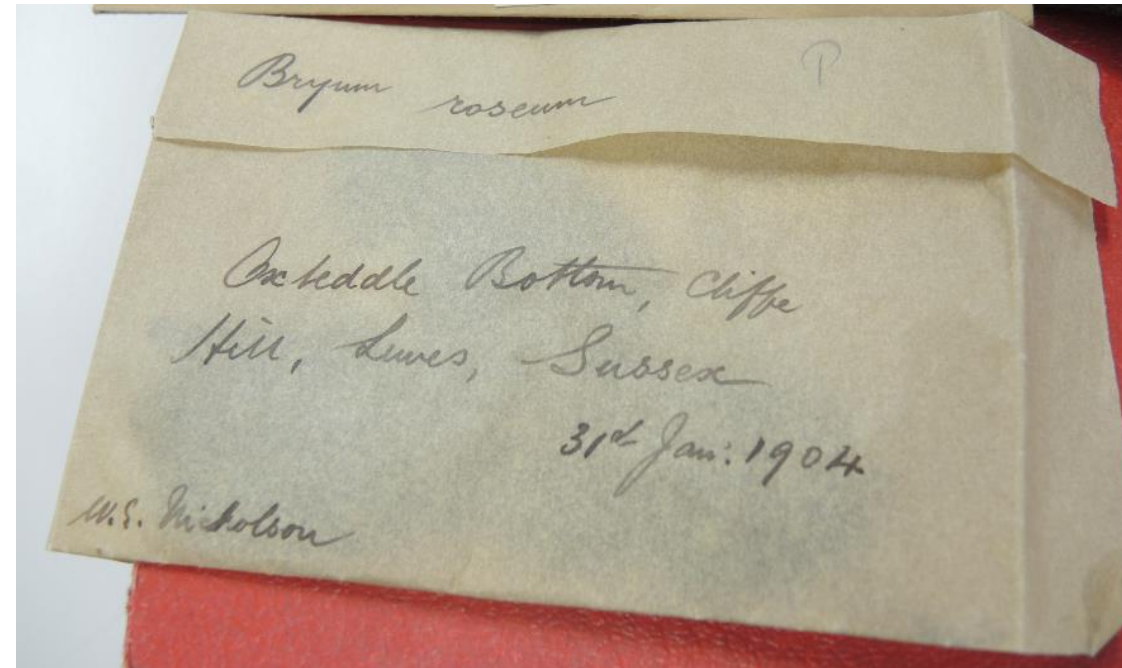 Bryum roseum
P
Oxteddle Bottom, Cliffe
Hill, Lewes, Sussex
31st Jan: 1904
W.E. Nicholson